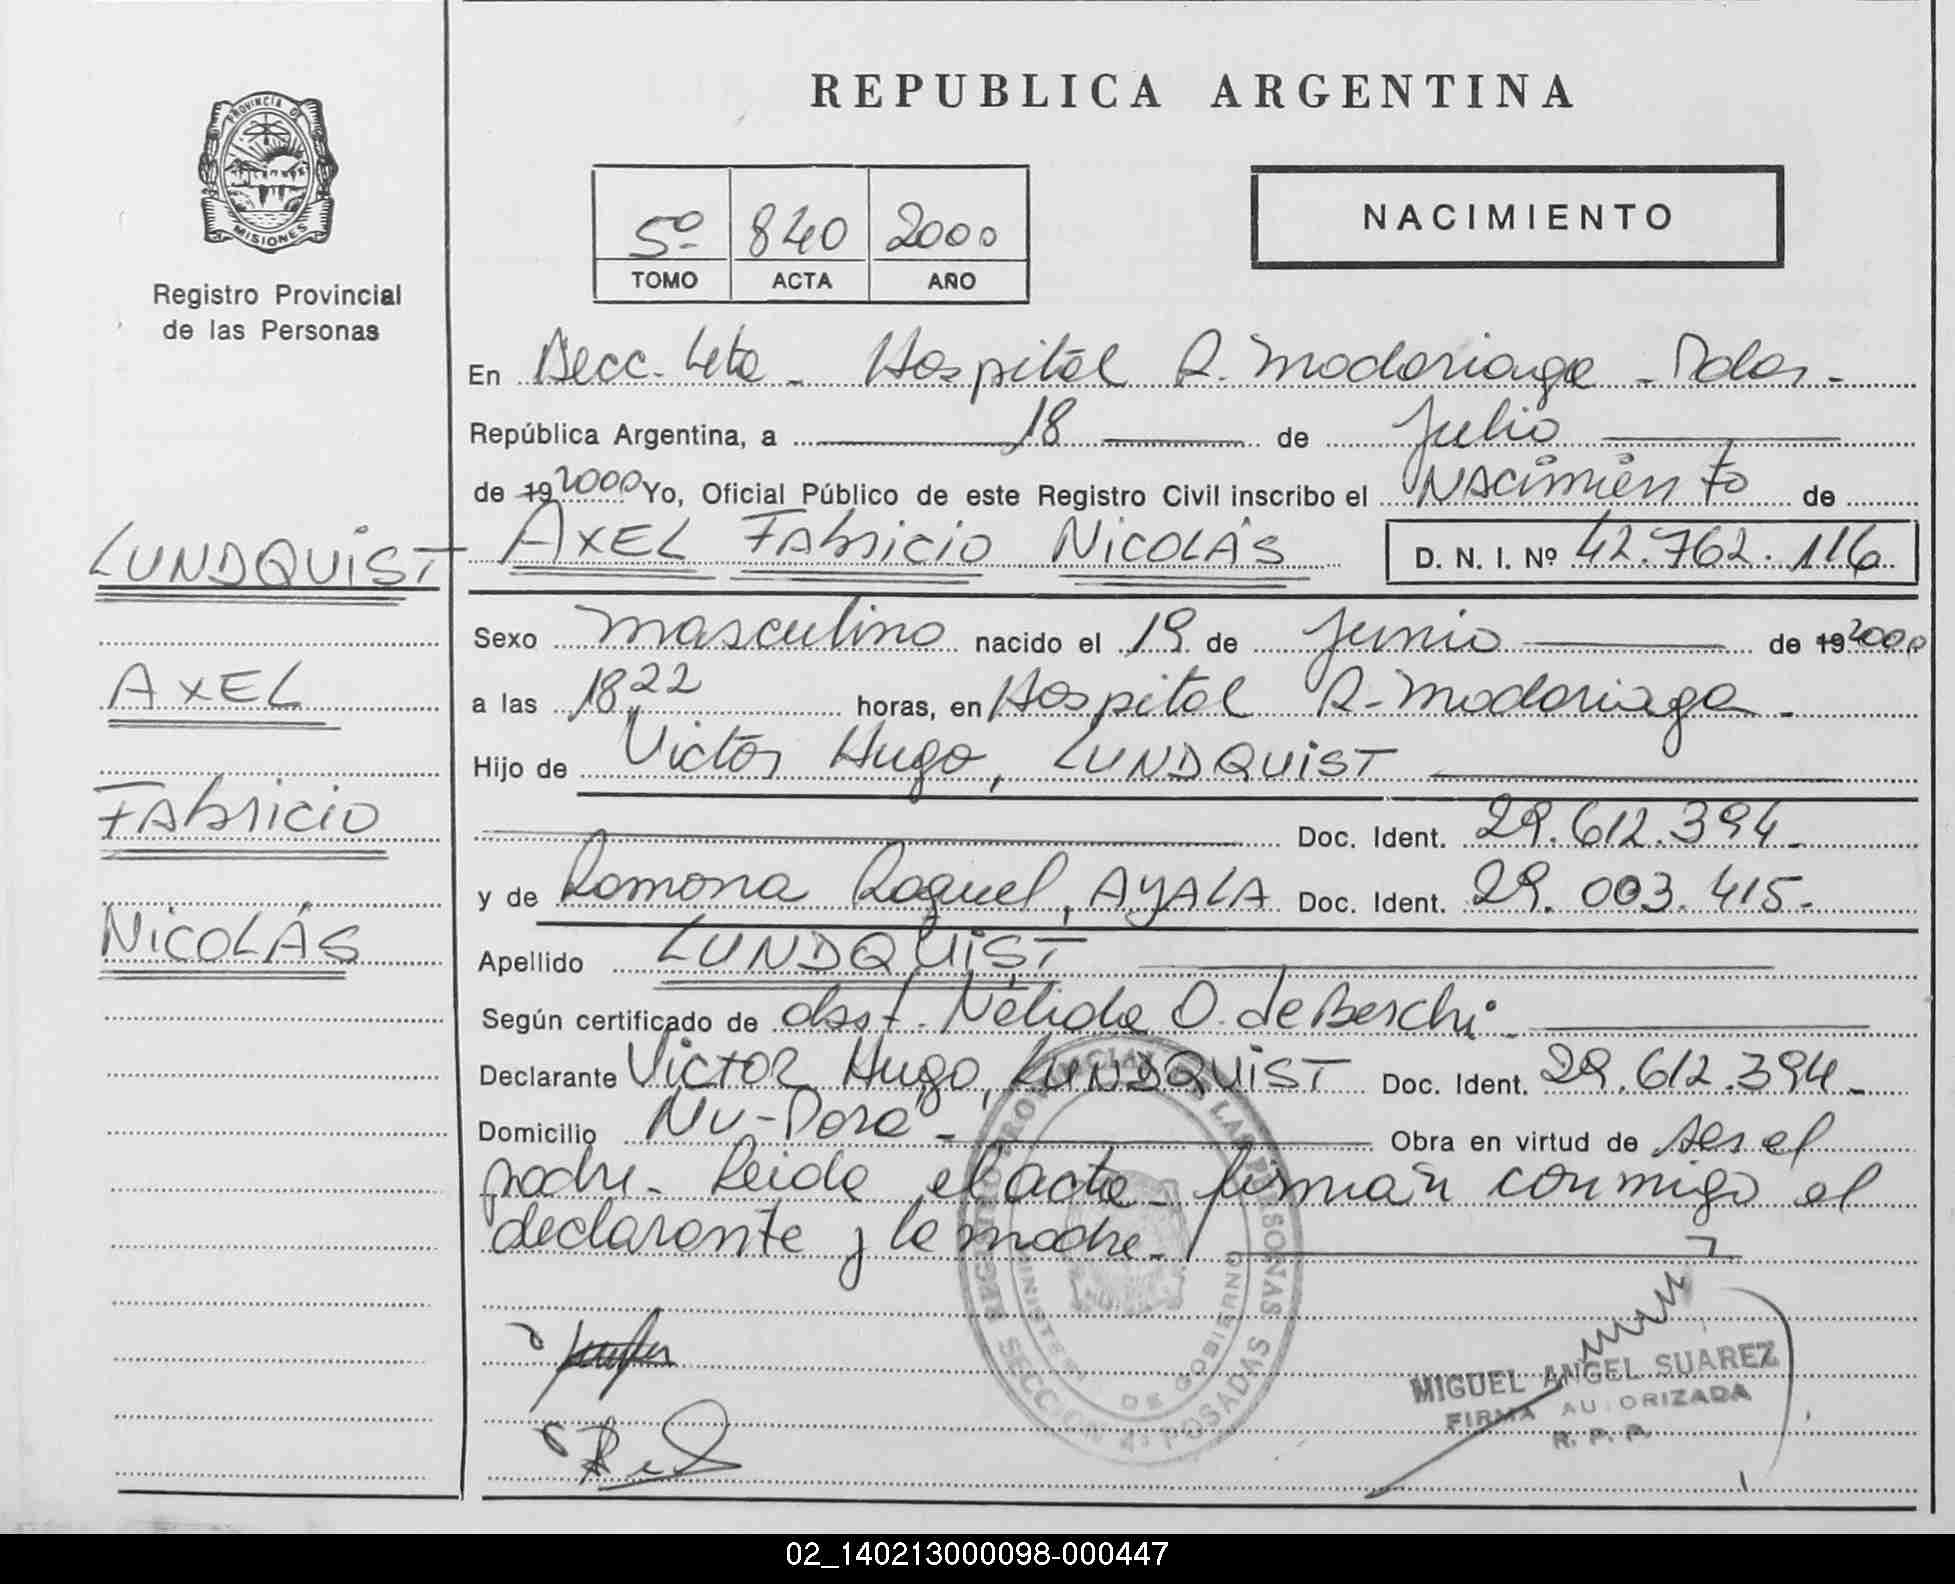 REPUBLICA ARGENTINA
PROVINCIA DE
MISIONES
Registro Provincial
de las Personas
5º 840 2000
TOMO ACTA AÑO
NACIMIENTO
En Secc. 4ta - Hospital R. Madariaga - Pdas. -
República Argentina, a 18 de Julio
de 19 2000 Yo, Oficial Público de este Registro Civil inscribo el Nacimiento de
LUNDQUIST AXEL Fabricio NicoLÁS D. N. I. Nº 42.762.116
Sexo masculino nacido el 19 de Junio de 19 2000
AXEL
a las 18,22 horas, en Hospital R. Madariaga -
Hijo de Victor Hugo, LUNDQUIST
Fabricio
Doc. Ident. 29.612.394 -
y de Ramona Raquel, AYALA Doc. Ident. 29.003.415 -
NicoLÁS
Apellido LUNDQUIST
Según certificado de obst. Nélida O. de Beschi -
Declarante Victor Hugo, LUNDQUIST Doc. Ident. 29.612.394 -
Domicilio Obra en virtud de ser el
padre - Leida el acta - firman conmigo el
declarante y la madre -
REGISTRO PROVINCIAL DE LAS PERSONAS
MINISTERIO DE GOBIERNO
SECCION 4ª POSADAS
MIGUEL ANGEL SUAREZ
FIRMA AUTORIZADA
R. P. P.
02_140213000098-000447